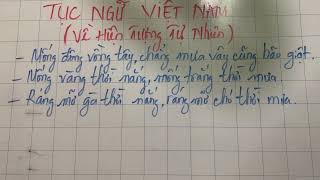 TỤC NGỮ VIỆT NAM
(Về Hiện Tượng Tự Nhiên)
- Mống đông vồng tây, chẳng mưa dây cũng bão giật.
- Mống vàng thời nắng, mống trắng thời mưa.
- Ráng mỡ gà thì nắng, ráng mỡ chó thời mưa.